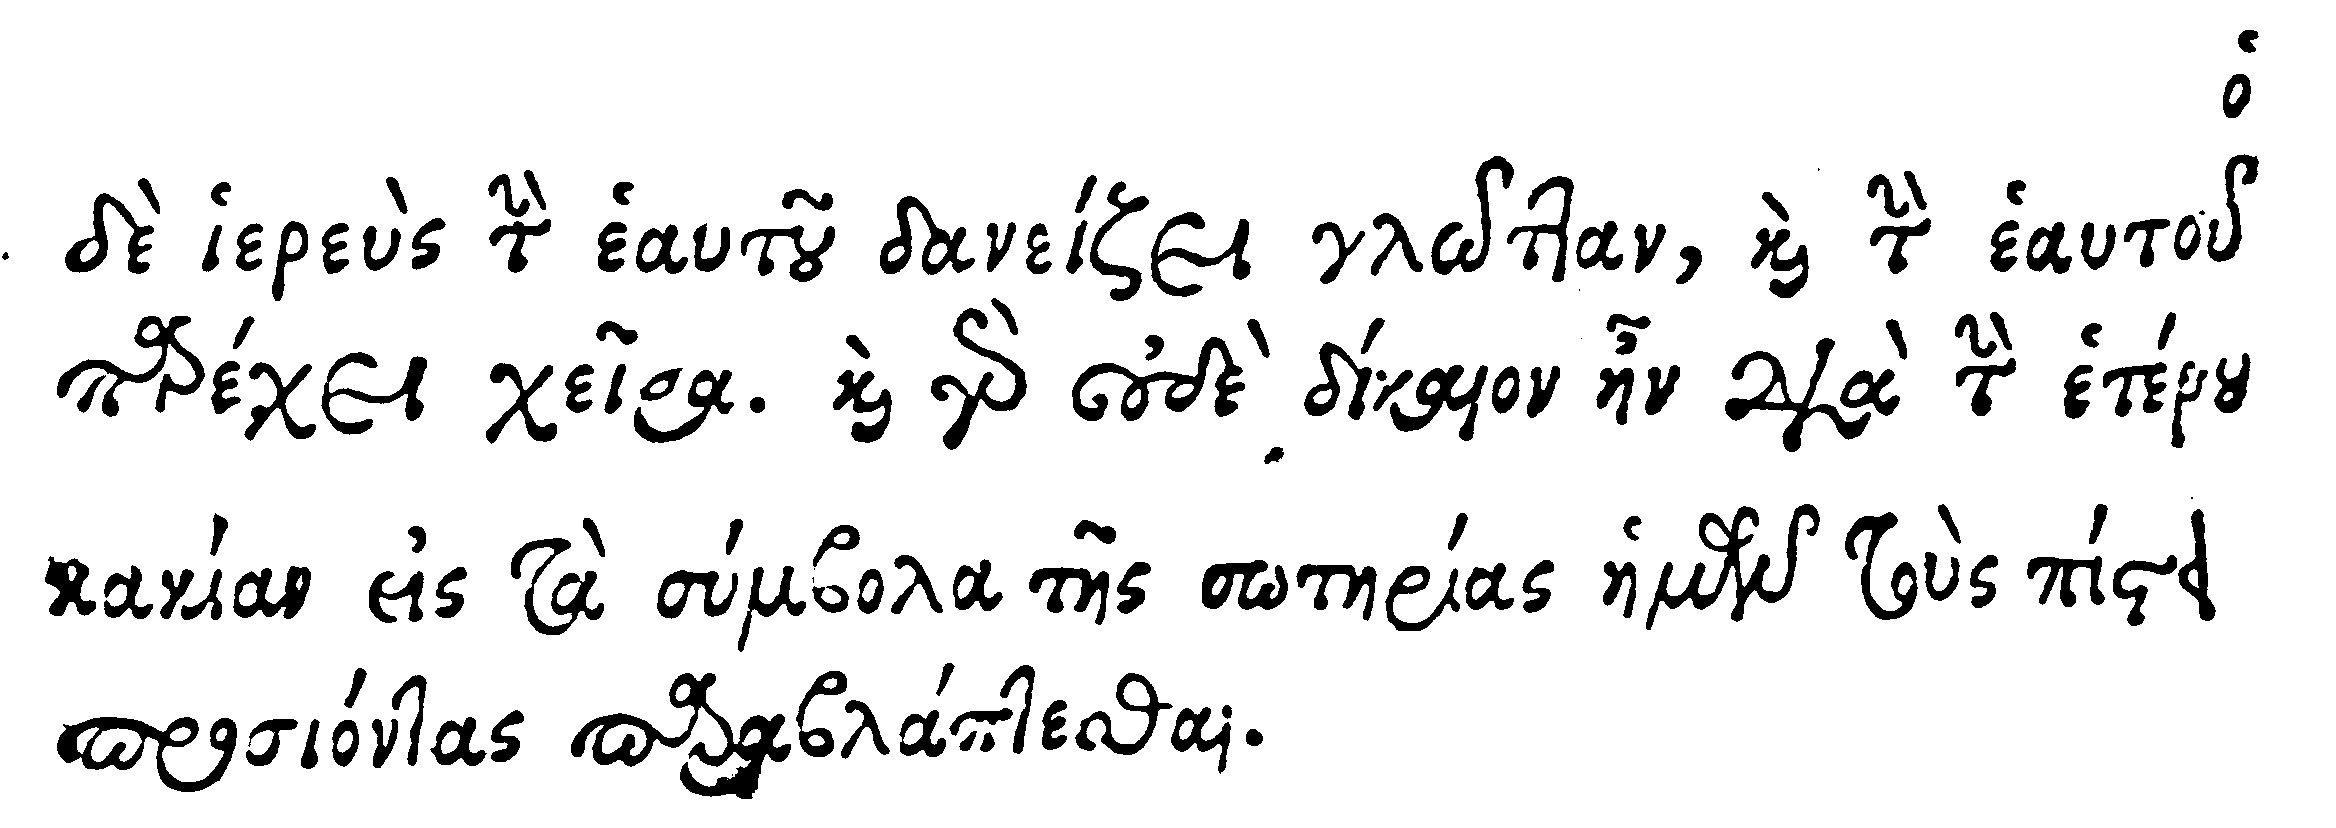 ὁ
δὲ ἱερεὺς τὴν ἑαυτοῦ δανείζει γλῶτταν, καὶ τὴν ἑαυτοῦ
παρέχει χεῖρα. καὶ γὰρ οὐδὲ δίκαιον ἦν διὰ τὴν ἑτέρου
κακίαν εἰς τὰ σύμβολα τῆς σωτηρίας ἡμῶν τοὺς πίστει
προσιόντας παραβλάπτεσθαι.